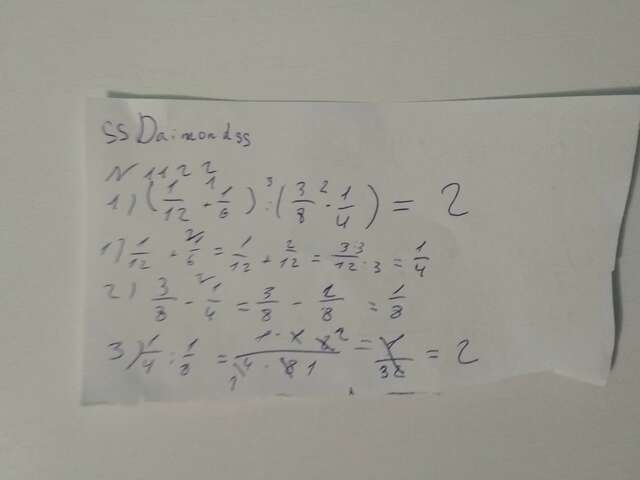 SSDaimondss
N 1122
1) (1/12 + 1/6) : (3/8 - 1/4) = 2
1) 1/12 + 1/6 = 1/12 + 2/12 = 3:3/12:3 = 1/4
2) 3/8 - 1/4 = 3/8 - 2/8 = 1/8
3) 1/4 : 1/8 = 1 · 8/4 · 1 = = 2